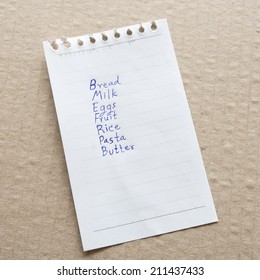 Bread
Milk
Eggs
Fruit
Rice
Pasta
Butter
shutterstock.com · 211437433